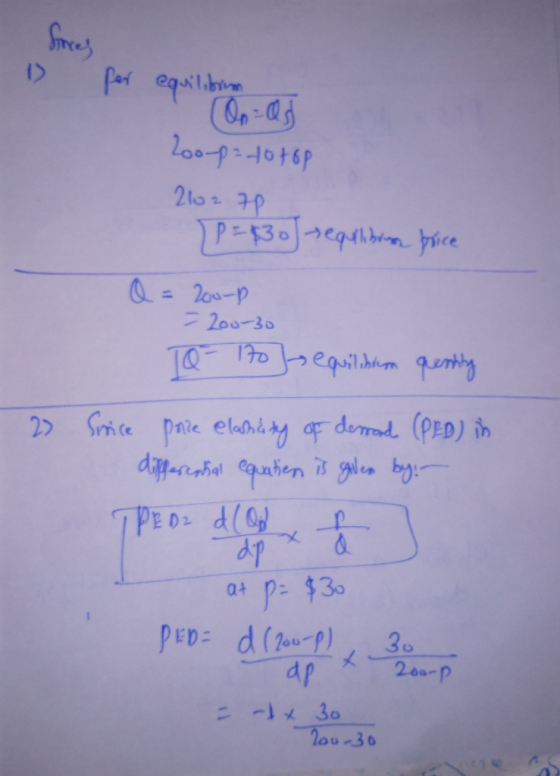 Since,
1) for equilibrium
Q_D = Q_S
200-p = -10+6p
210 = 7p
P = $30 → equilibrium price
Q = 200-p
= 200-30
Q = 170 → equilibrium quantity
2) Since price elasticity of demand (PED) in
differential equation is given by:-
PED = d(Q_D)/dp × p/Q
at p = $30
PED = d(200-p)/dp × 30/200-p
= -1 × 30/200-30